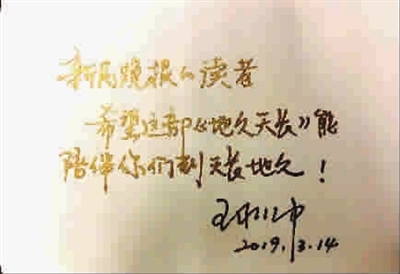 新民晚报的读者
希望这部《地久天长》能
陪伴你们到天长地久！
2019.3.14